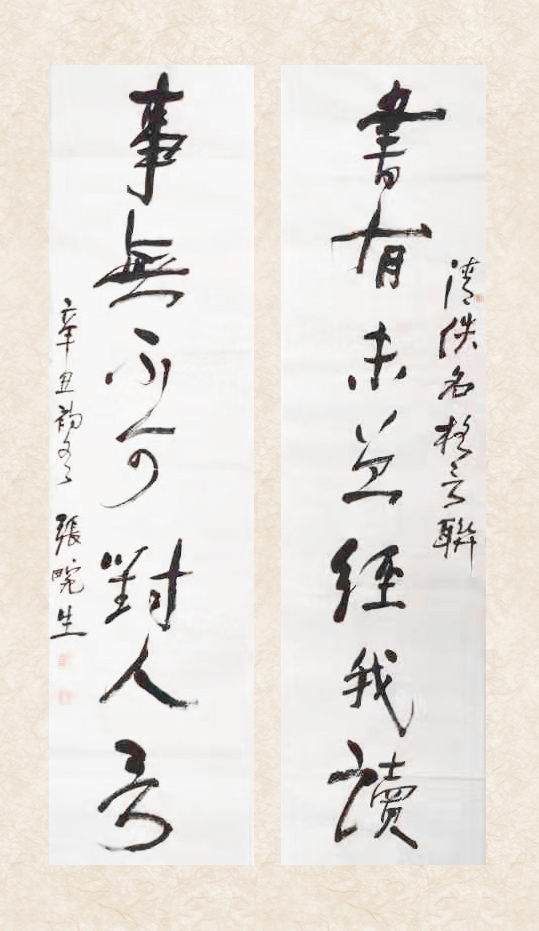 清佚名格言聯
書有未曾經我讀
事無不可對人言
辛丑初冬 張畹生